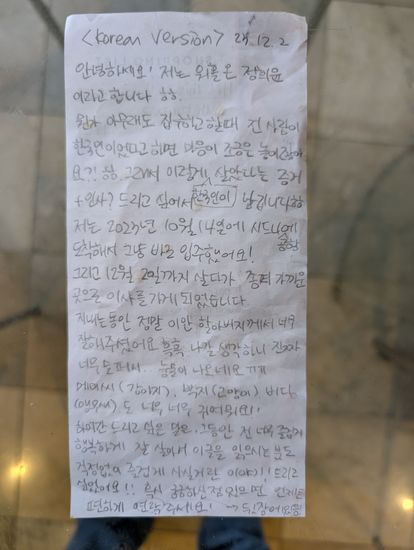 <Korean Version> 24.12.2
안녕하세요! 저는 위층은 정희윤
이라고 합니다 ㅎㅎ.
뭔가 아무래도 집 구하고 할때 전 사람이
한국인이었다고 하면 마음이 조금은 놓이잖아
요?! ㅎㅎ 그래서 이렇게 살았다는 증거
+ 인사? 드리고 싶어서 한국인이 남깁니다 ㅎㅎ
저는 2023년 10월 14일에 시드니에 공항
도착해서 그냥 바로 입주했어요!
그리고 12월 2일까지 살다가 좀더 가까운
곳으로 이사를 가게 되었습니다.
지내는동안 정말 이안 할아버지께서 너무
잘해주셨어요 흑흑 나갈 생각하니 진짜
너무 슬퍼서.. 눈물이 나오네요
(강아지), (고양이)
도 너무 너무 귀여워요!!
하여간 드리고 싶은 말은, 그동안 전 너무 즐겁게
행복하게 잘 살아서 이글을 읽으시는 분도
걱정없이 즐겁게 사실거란 이야기!! 드리고
싶었어요!! 혹시 궁금하신점 있으면 언제든
편하게 연락주세요! → 뒷장에있음